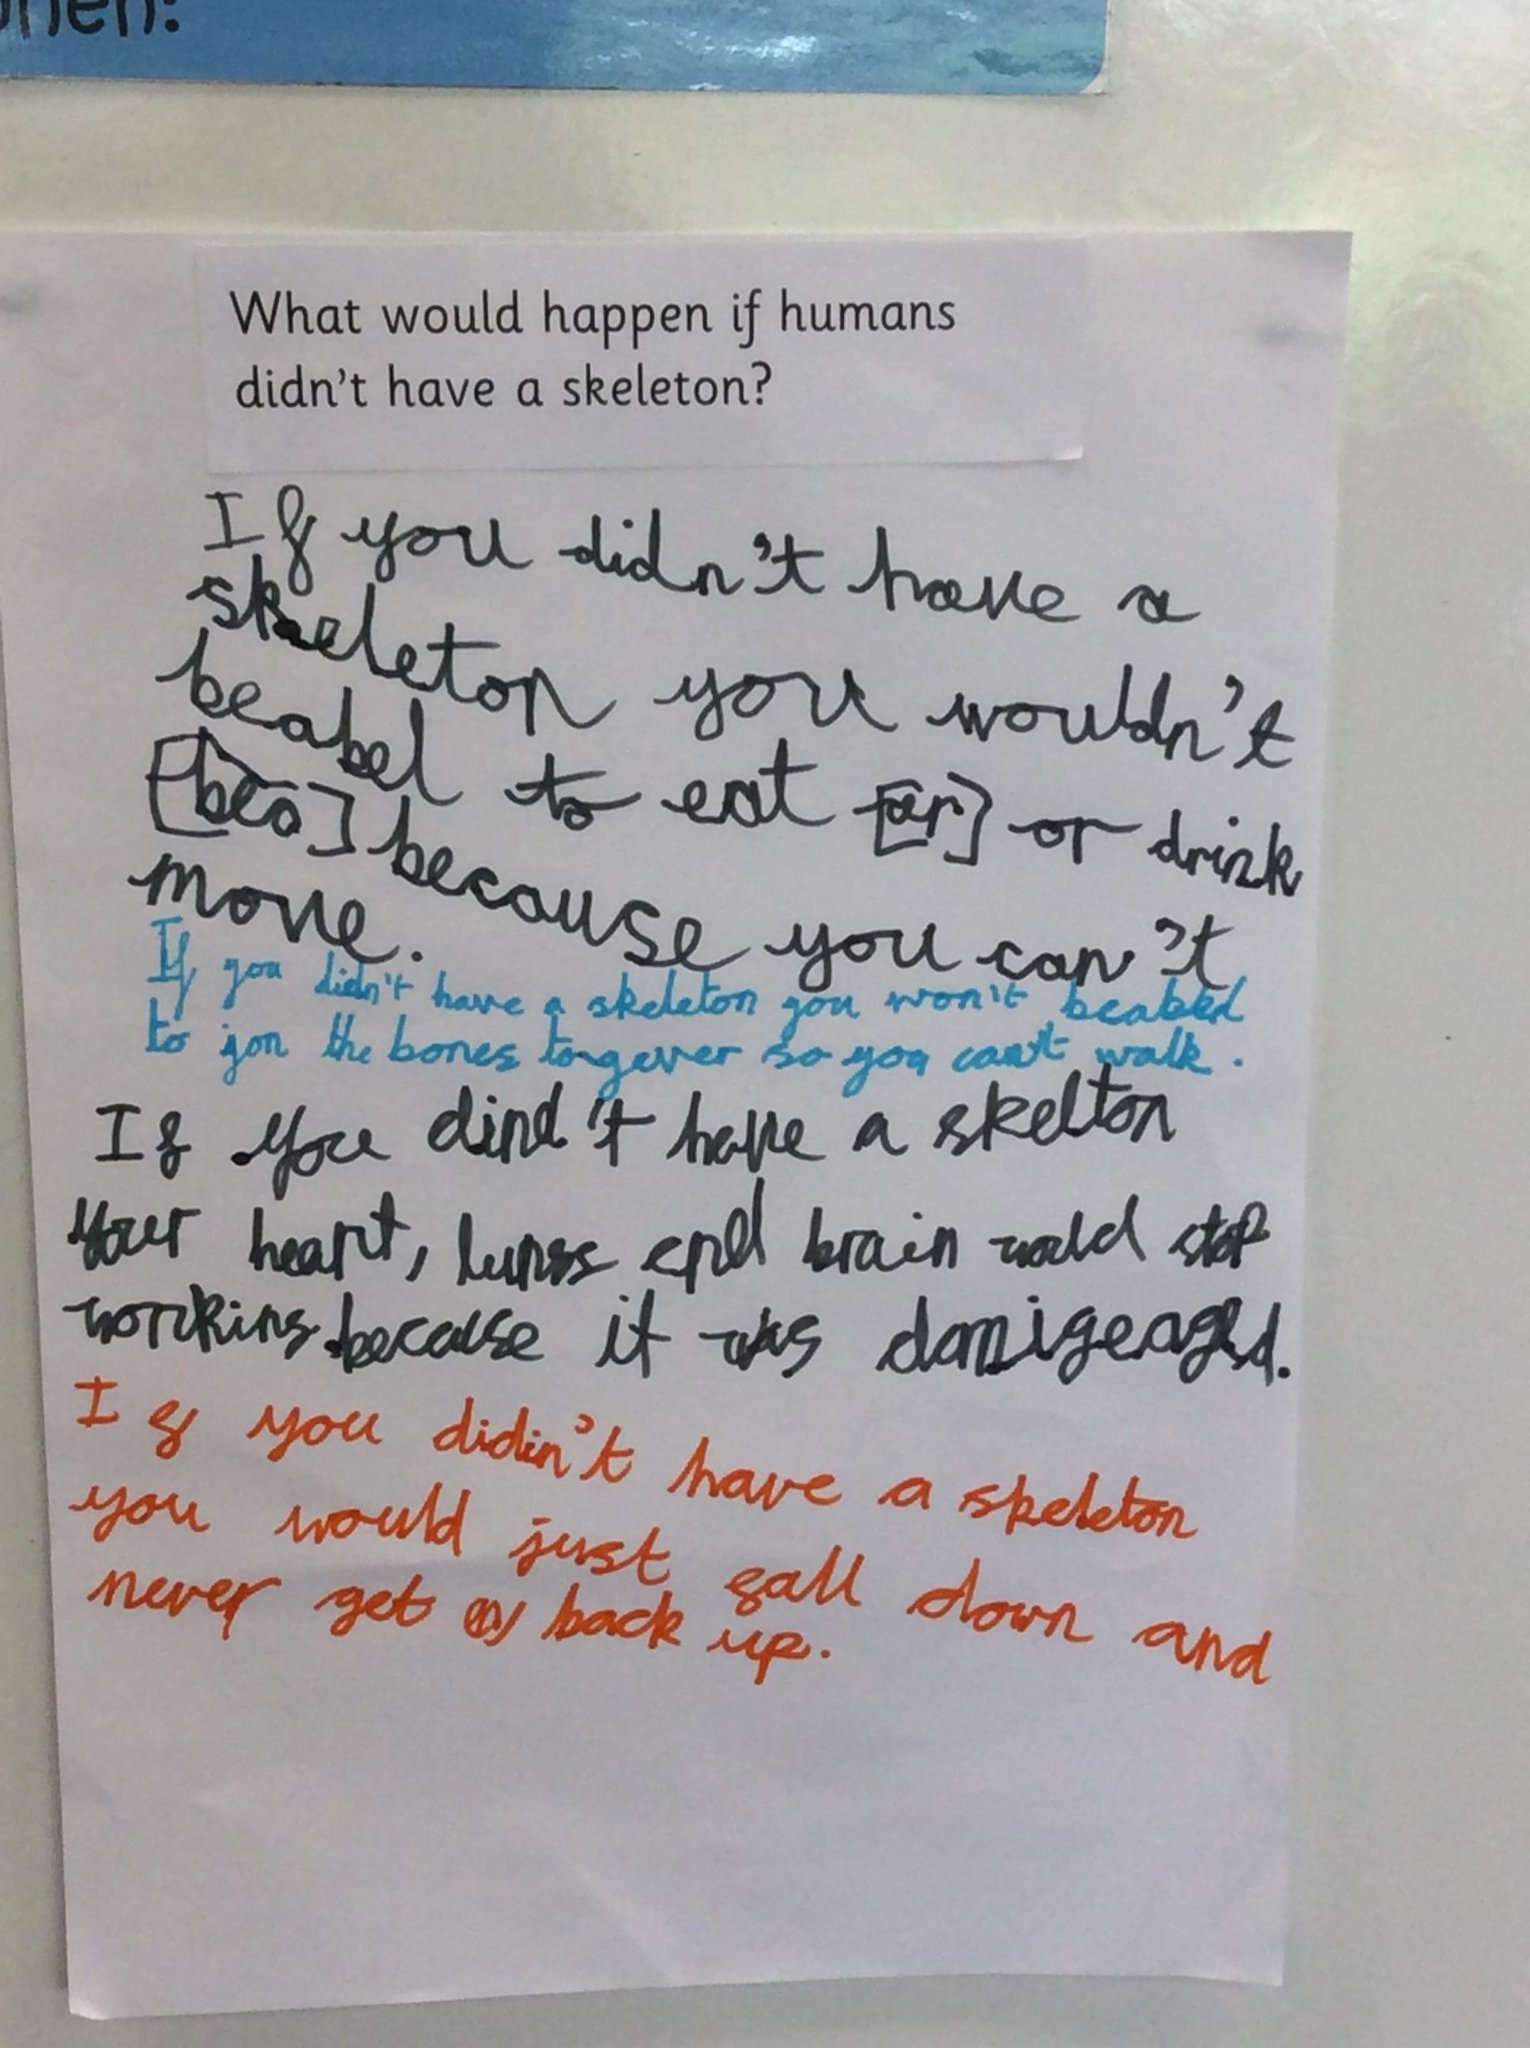 What would happen if humans
didn't have a skeleton?
If you didn't have a
skeleton you wouldn't
beabel to eat [ar] or drink
[bea] because you can't
move.
If you didn't have a skeleton you won't beabled
to jon the bones togever so you can't walk.
If you dind't have a skelton
your heart, lungs end brain would stop
worcking because it was damigeaged.
If you didin't have a skeleton
you would just fall down and
never get back up.